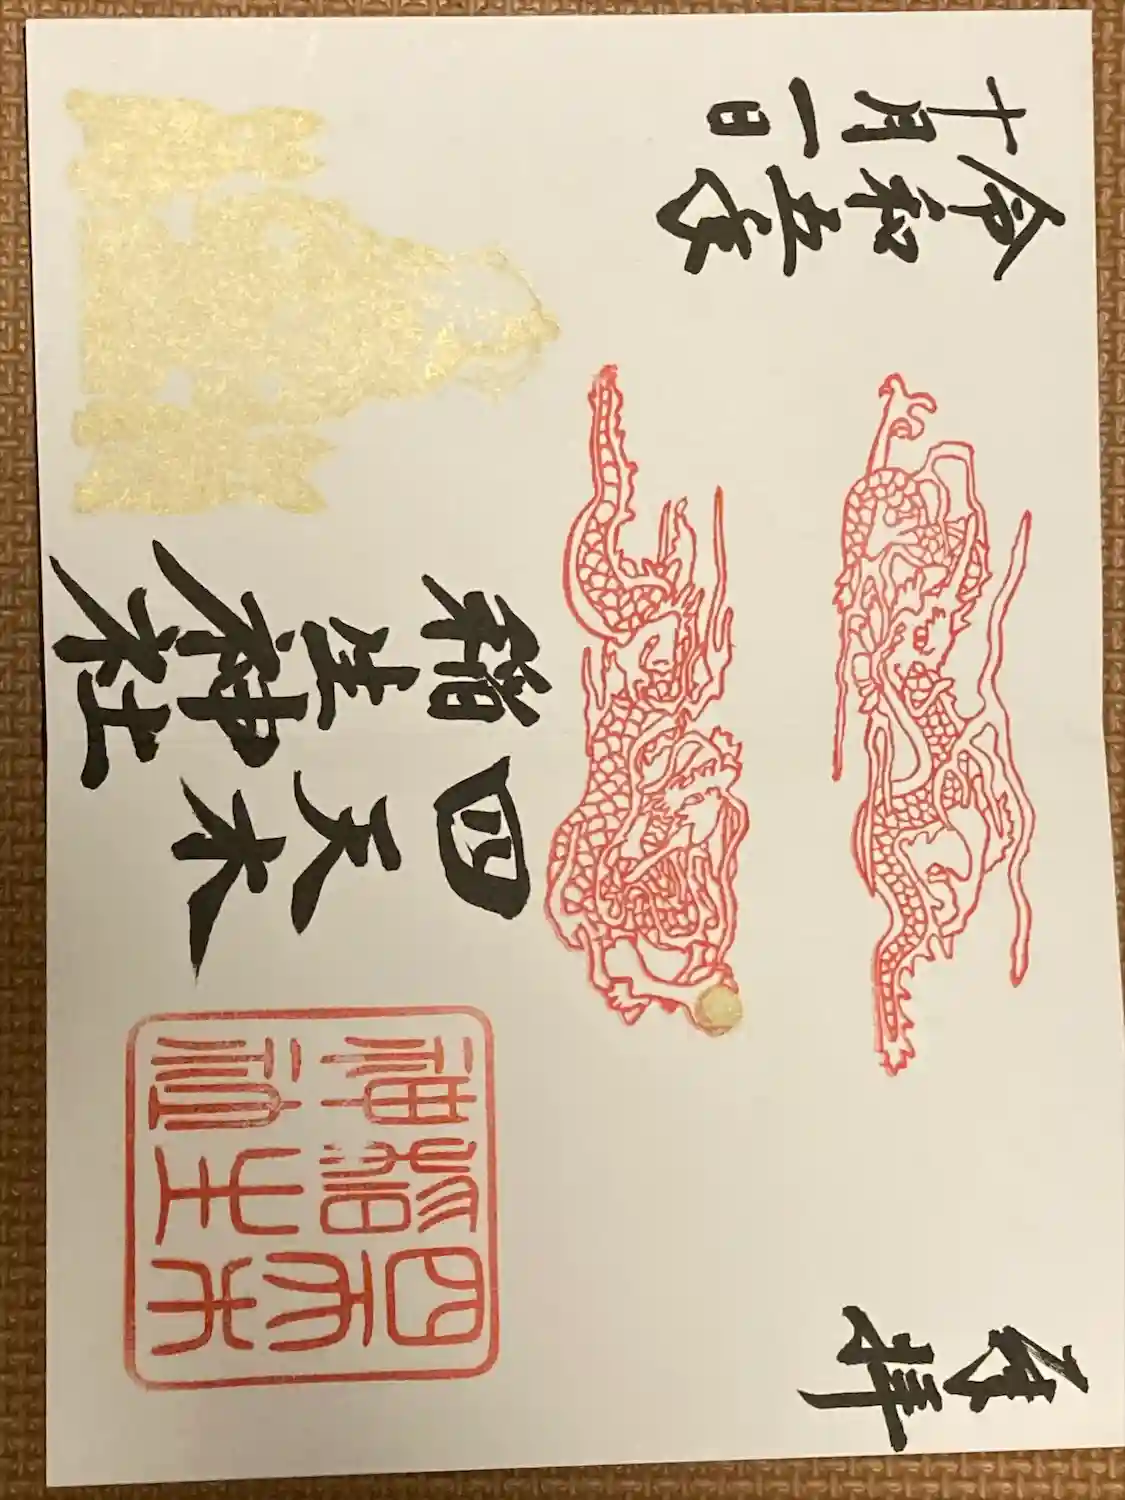 奉拝
四天木
稲生神社
令和五年
十月一日
四天木
稲生
神社